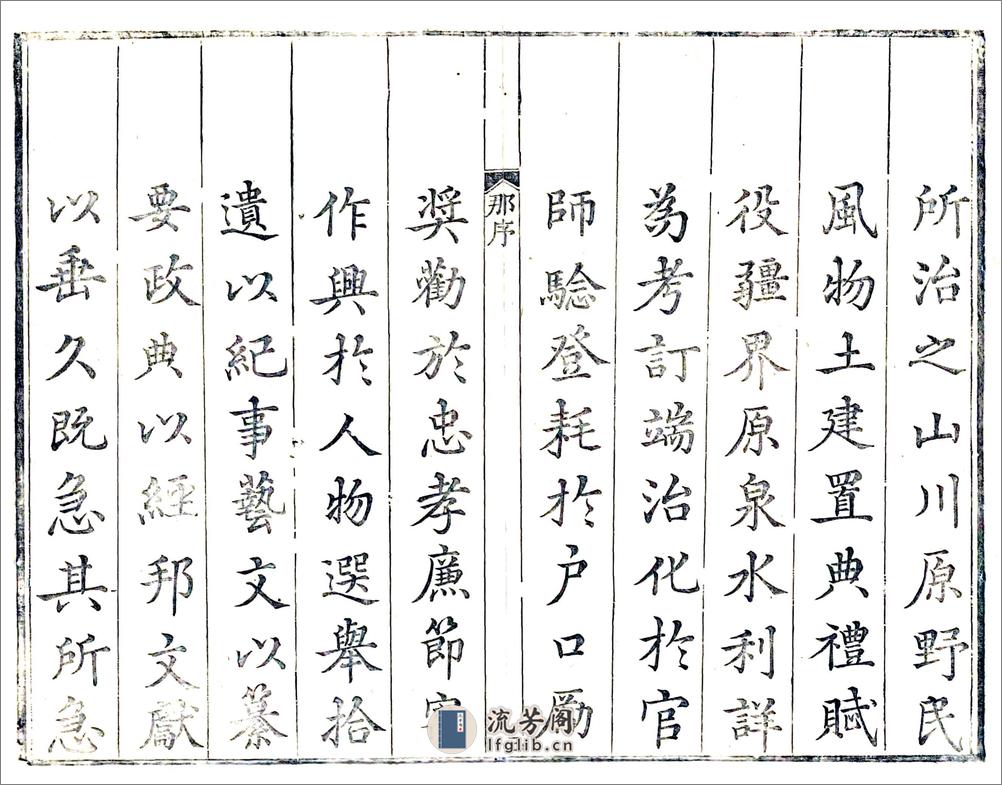 所治之山川原野民
風物土建置典禮賦
役疆界原泉水利詳
為考訂端治化於官
師驗登耗於户口勵
那序
奬勸於忠孝廉節
作興於人物選舉拾
遺以紀事藝文以纂
要政典以經邦文獻
以垂久既急其所急
流芳阁
lfglib.cn